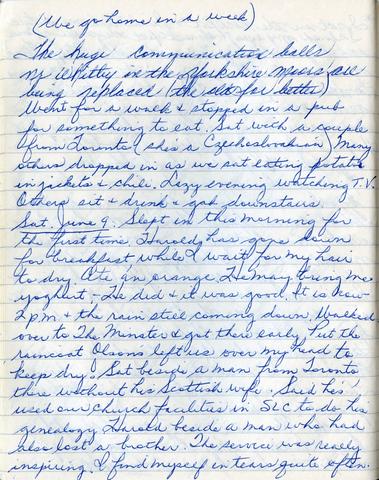 (We go home in a week)
The huge communication balls
nr ilkitty in the Yorkshire moors are
being replaced (the old for better)
Went for a walk & stopped in a pub
for something to eat. Sat with a couple
from Toronto (she's a Czechoslovakian) Many
others dropped in as we sat eating potato
in jackets & chile. Lazy evening watching T.V.
Others sit & drink & gab downstairs
Sat. June 9. Slept in this morning for
the first time, Harold has gone down
for breakfast while I wait for my hair
to dry. Ate an orange. He may bring me
yoghurt - He did & it was good. It is now
2 p.m. & the rain still coming down. Walked
over to The Minster & got there early. Put the
raincoat Olsons left us over my head to
keep dry. Sat beside a man from Toronto
there without his Scottish wife. Said he's
used our church facilities in SLC to do his
genealogy. Harold beside a man who had
also lost a brother. The service was really
inspiring. I find myself in tears quite often.